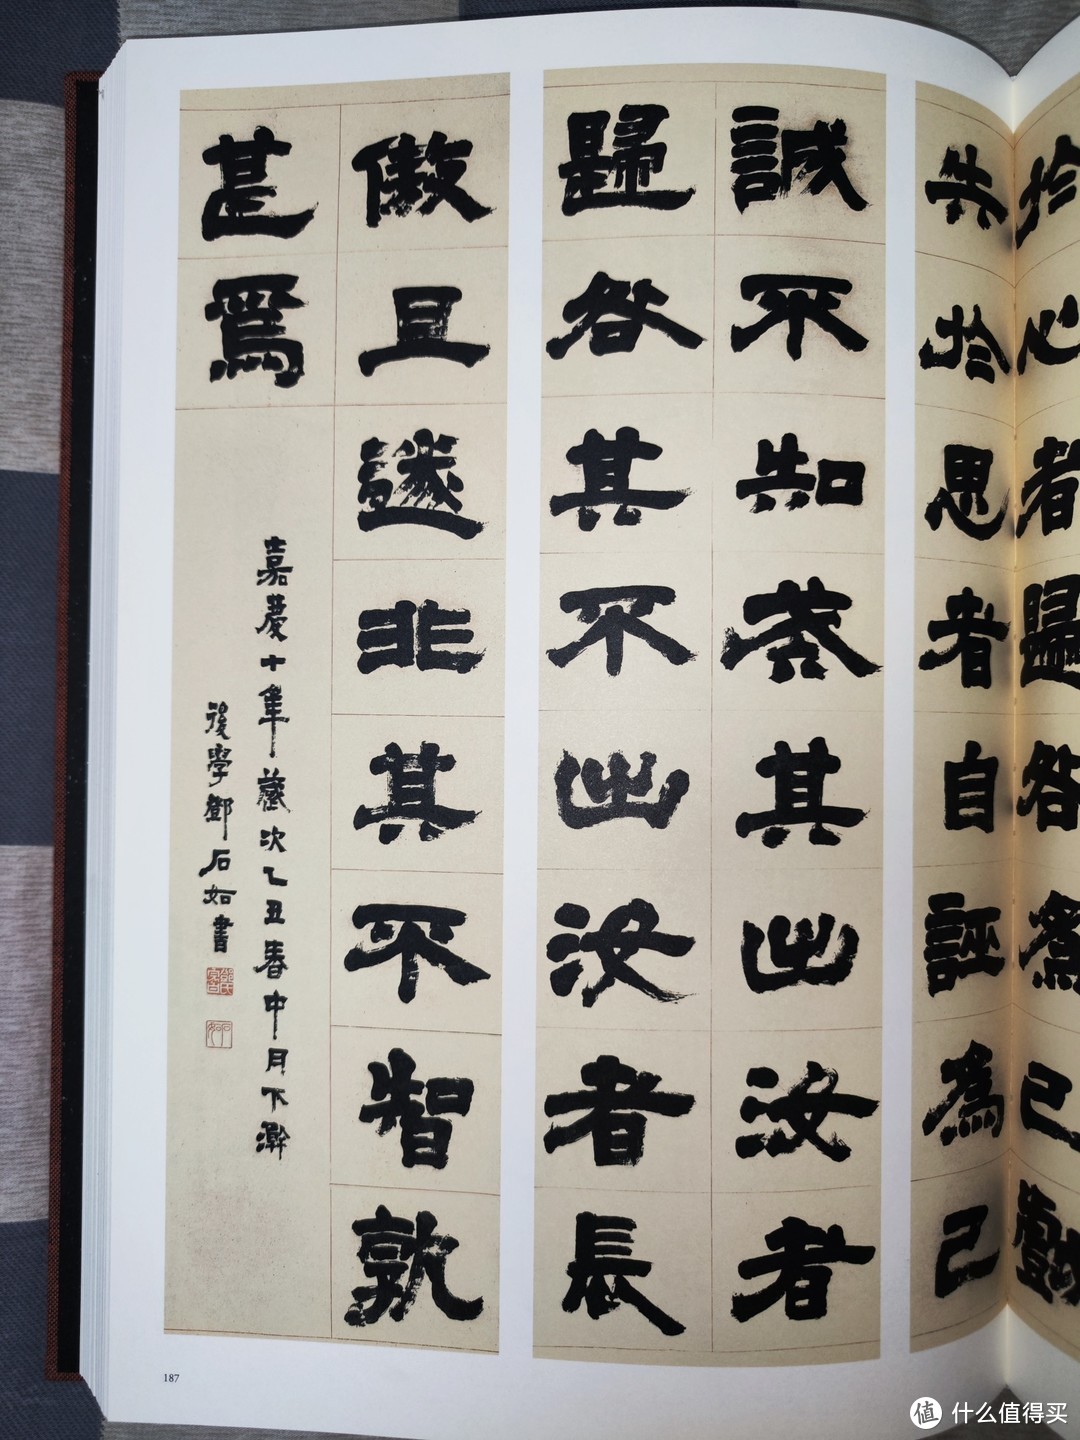 於心者歸咎為己戲
失於思者自誣為己
誠不知戒其出汝者
歸咎其不出汝者長
傲且遂非其不智孰
甚焉
嘉慶十年歲次乙丑春中月下澣
後學鄧石如書
石如
187
值 什么值得买